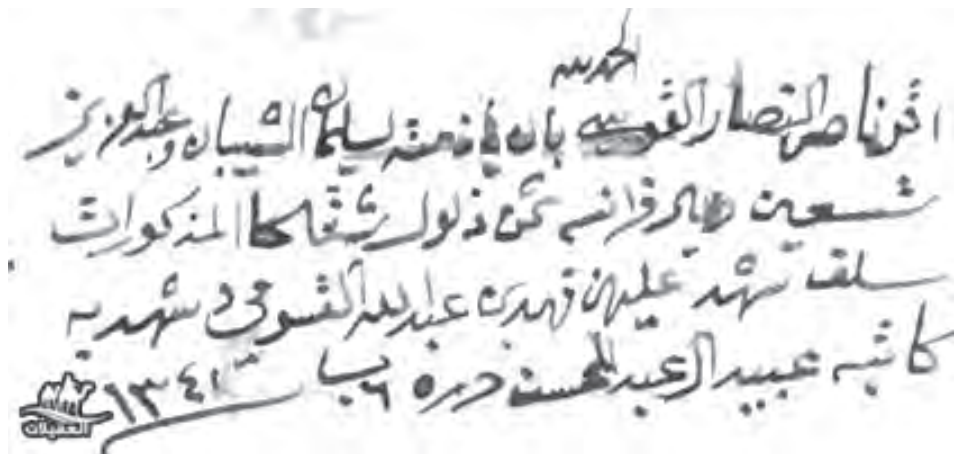 الحمد لله
اقر ناصر النصار القوسي بان في ذمته لسليمان الشيبان وعبدالعزيز
تسعين ريال فرانسه ثمن ذلول شقحا المذكورات
سلف شهد عليهن فهد بن عبدالله القسومي وشهد به
كاتبه عبيد ال عبد المحسن حرره ٦ ب سنة ١٣٤١
العقيلات